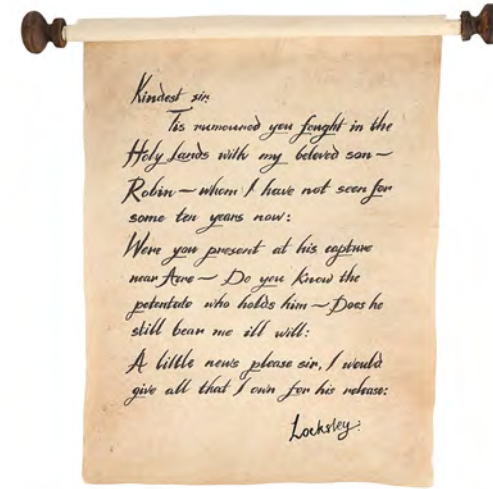 Kindest sir:
Tis rumoured you fought in the
Holy Lands with my beloved son —
Robin — whom I have not seen for
some ten years now:
Were you present at his capture
near Acre — Do you know the
potentate who holds him — Does he
still bear me ill will:
A little news please sir, I would
give all that I own for his release:
Locksley: